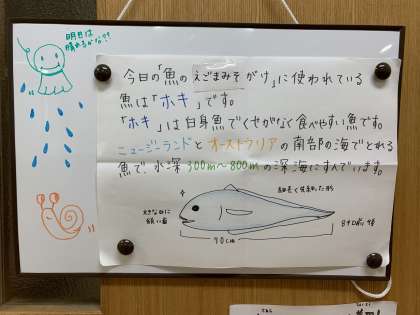 明日は
晴れるかな??
今日の「魚のえごまみそがけ」に使われている
魚は「ホキ」です。
「ホキ」は白身魚でくせがなく食べやすい魚です。
ニュージーランドとオーストラリアの南部の海でとれる
魚で、水深300m〜800mの深海にすんでいます。
細長く先細った形
大きな目に
鋭い歯
70cm